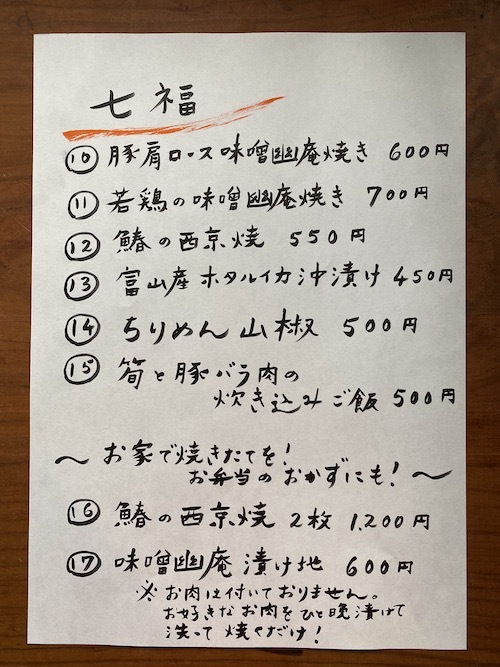 七福
⑩ 豚肩ロース味噌幽庵焼き 600円
⑪ 若鶏の味噌幽庵焼き 700円
⑫ 鰆の西京焼 550円
⑬ 富山産ホタルイカ沖漬け 450円
⑭ ちりめん山椒 500円
⑮ 筍と豚バラ肉の
炊き込みご飯 500円
〜お家で焼きたてを!
お弁当のおかずにも!〜
⑯ 鰆の西京焼 2枚 1,200円
⑰ 味噌幽庵漬け地 600円
※お肉は付いておりません。
お好きなお肉をひと晩漬けて
洗って焼くだけ!